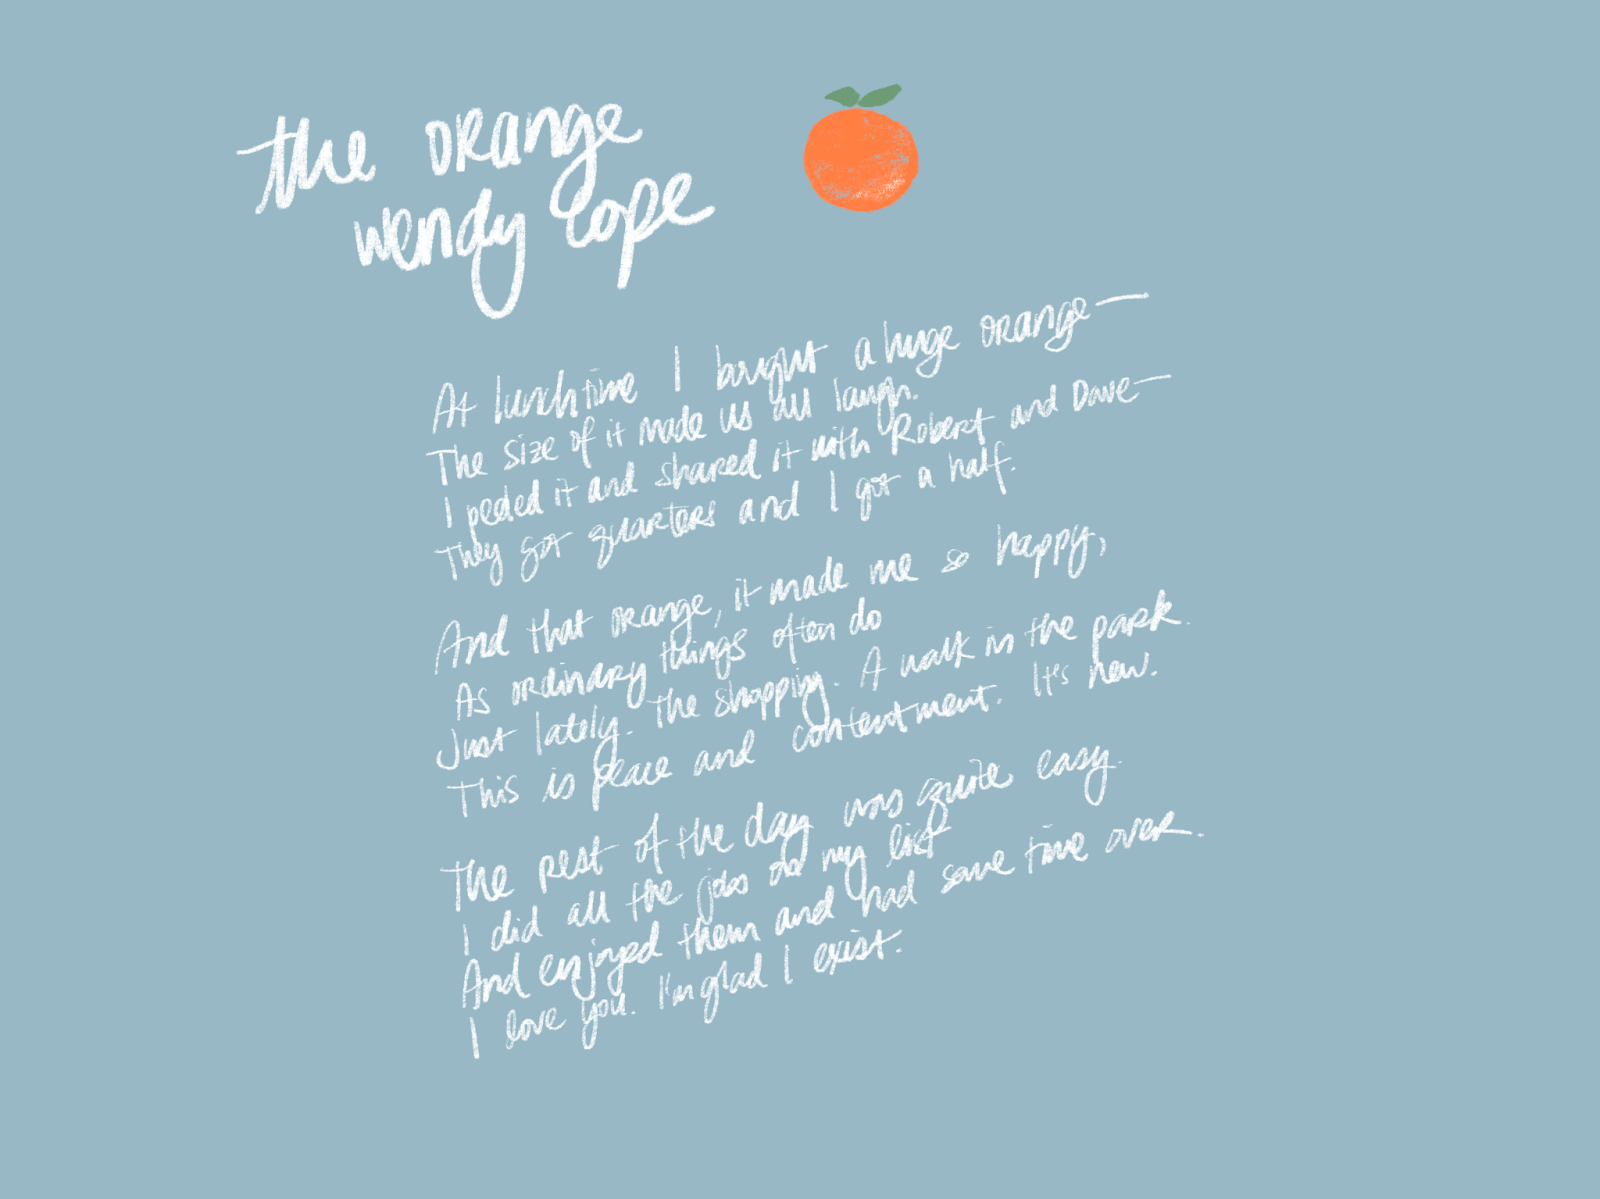 the orange
wendy cope
At lunchtime I bought a huge orange—
The size of it made us all laugh.
I peeled it and shared it with Robert and Dave—
They got quarters and I got a half.
And that orange, it made me so happy,
As ordinary things often do
Just lately. The shopping. A walk in the park.
This is peace and contentment. It's new.
The rest of the day was quite easy.
I did all the jobs on my list
And enjoyed them and had some time over.
I love you. I'm glad I exist.